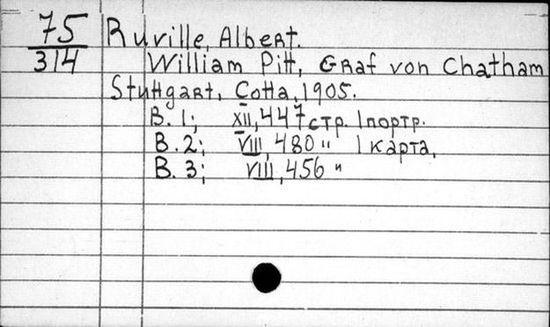 75
314
Ruville, Albert.
William Pitt, Graf von Chatham
Stuttgart, Cotta, 1905.
B. 1; XII, 447 стр. 1 портр.
B. 2; VIII, 480 " 1 карта,
B. 3; VIII, 456 "